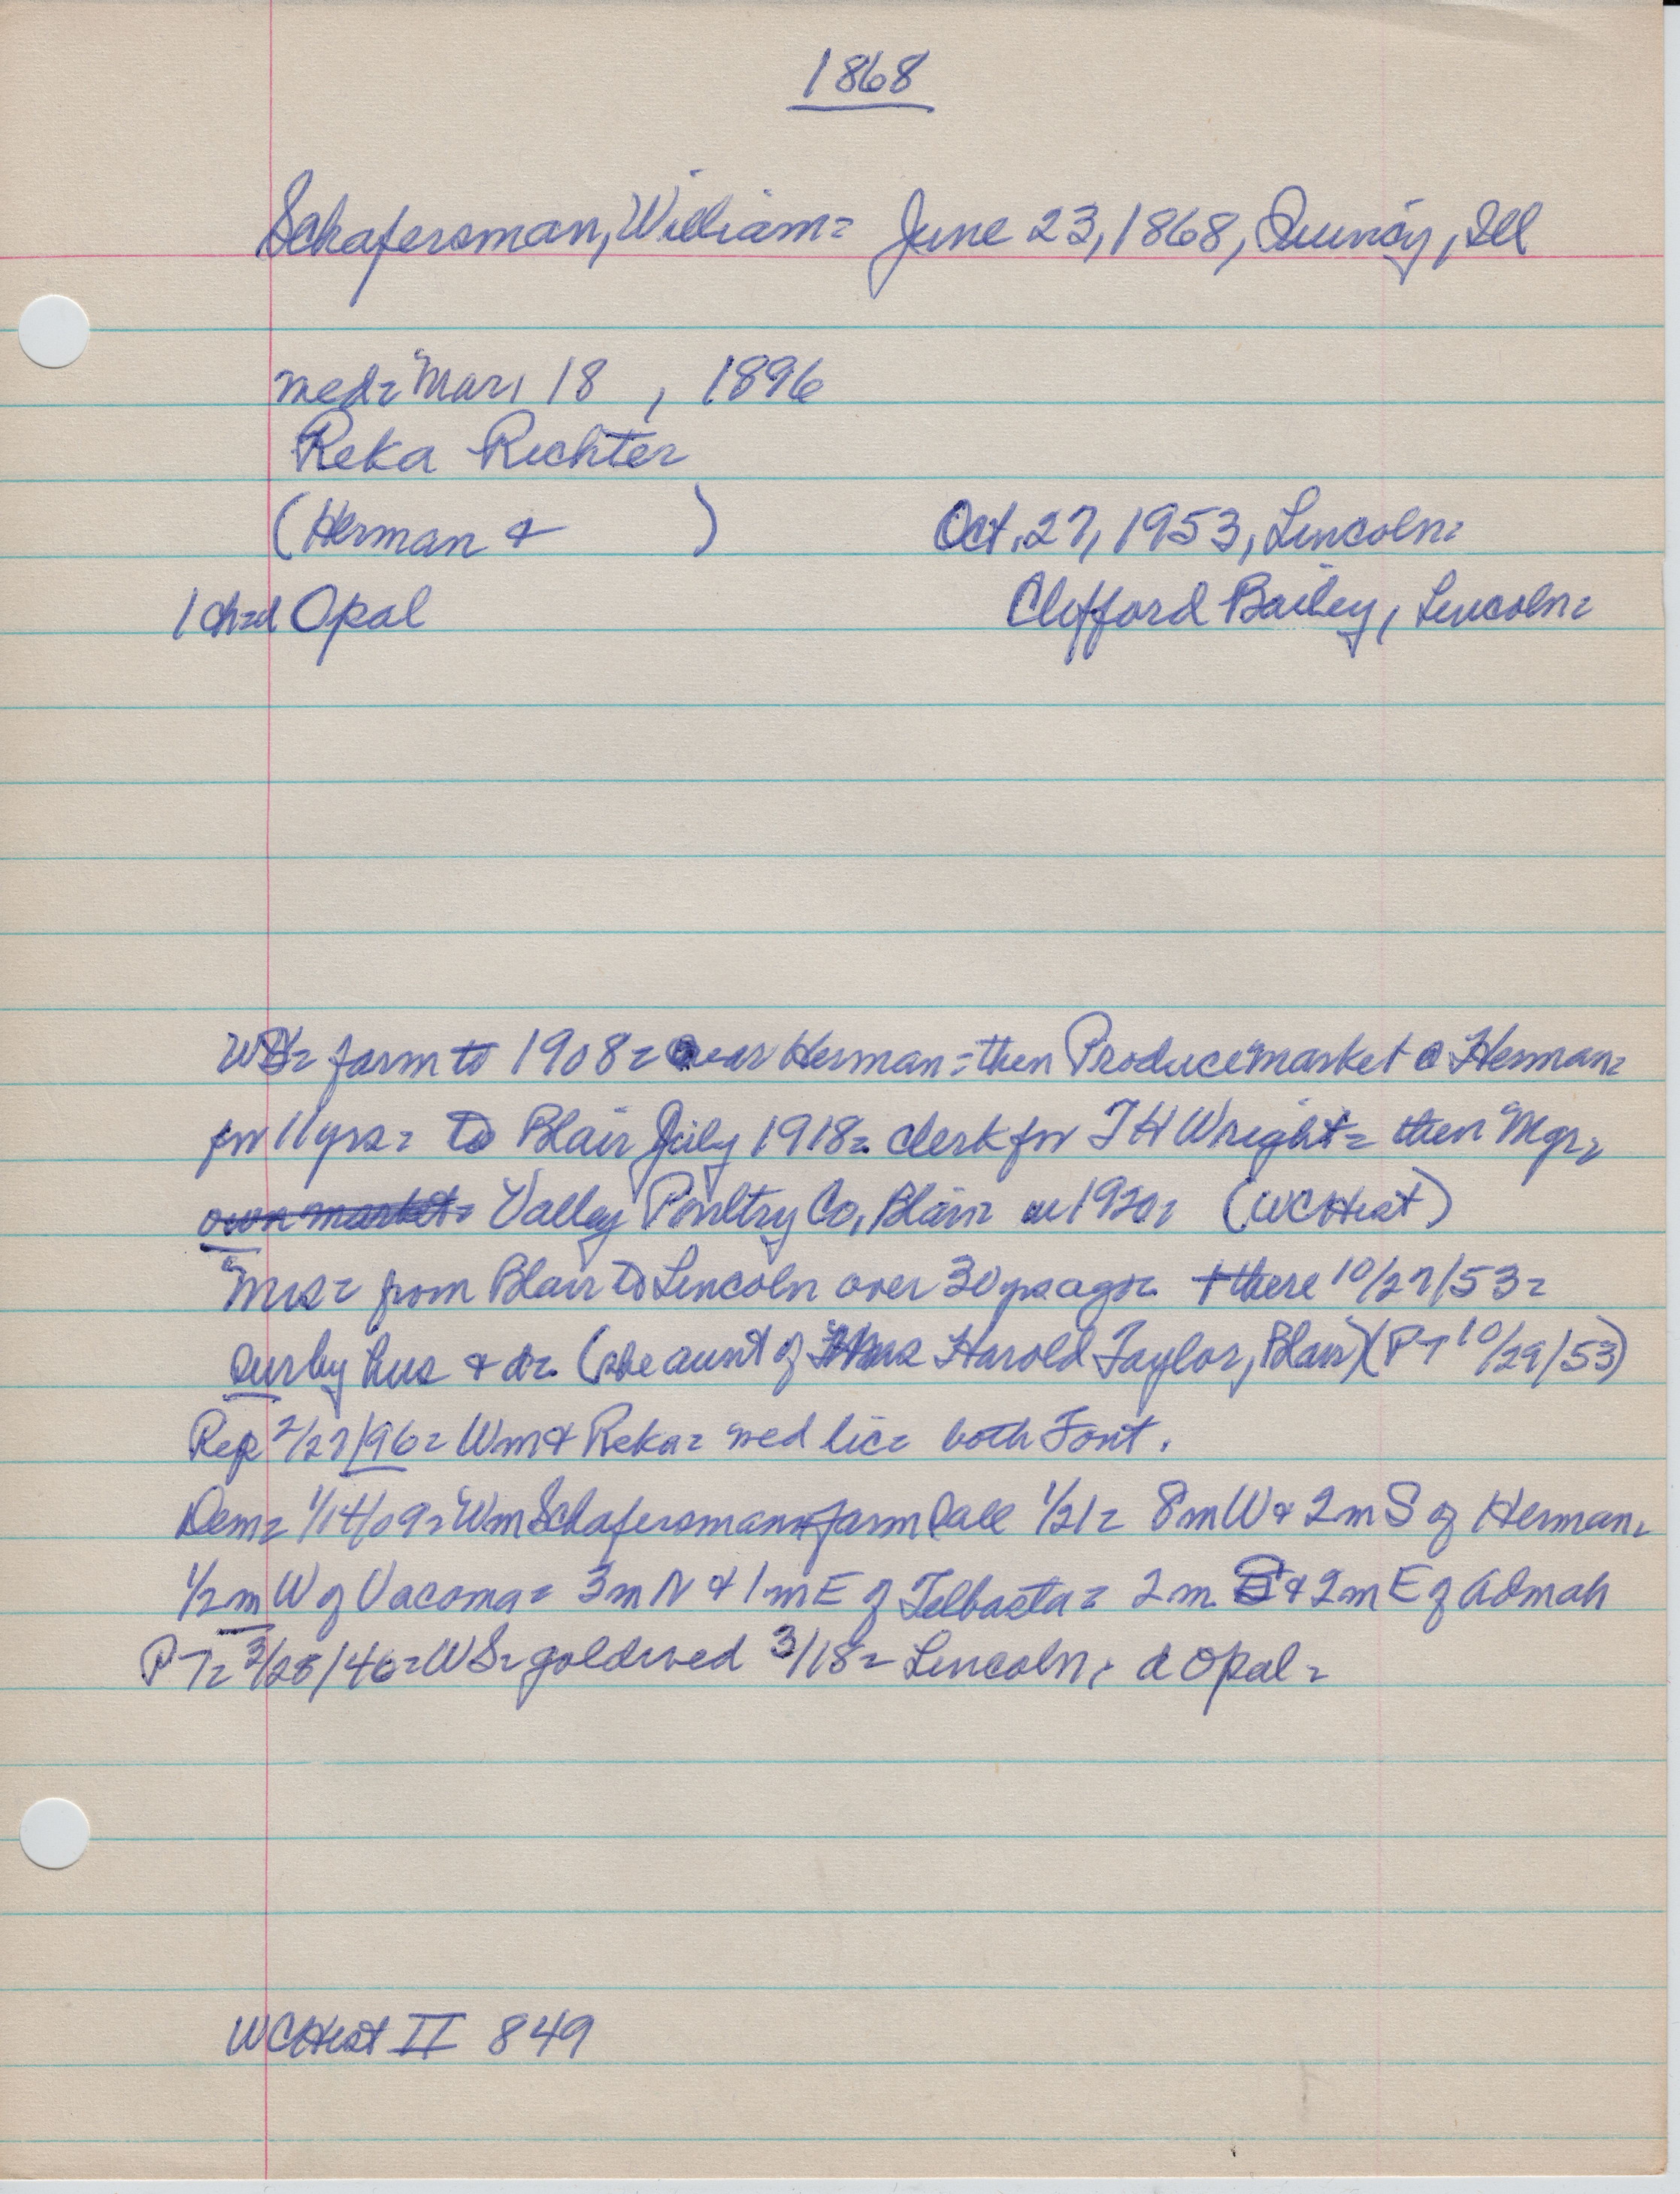 1868
Schafersman, William= June 23, 1868, Quincy, Ill
wed= Mar. 18 , 1896
Reka Richter
(Herman & ) Oct. 27, 1953, Lincoln=
1 ch=d Opal Clifford Bailey, Lincoln=
WS= farm to 1908= near Herman= then Produce market @ Herman=
for 11 yrs= to Blair July 1918= clerk for T H Wright= then Mgr,
own market= Valley Poultry Co, Blair= in 1920= (WCHist)
Mrs= from Blair to Lincoln over 30 yrs ago= + there 10/27/53=
sur by hus & d= (she aunt of Harold Taylor, Blair) (PT 10/29/53)
Rep 2/27/96= Wm & Reka= wed lic= both Font.
Dem= 1/14/09= Wm Schafersman= farm sale 1/21= 8 m W & 2 m S of Herman=
1/2 m W of Vacoma= 3 m N & 1 m E of Telbasta= 2 m S & 2 m E of Admah
PT= 3/28/46= WS= gold wed 3/18= Lincoln, d Opal=
WCHist II 849